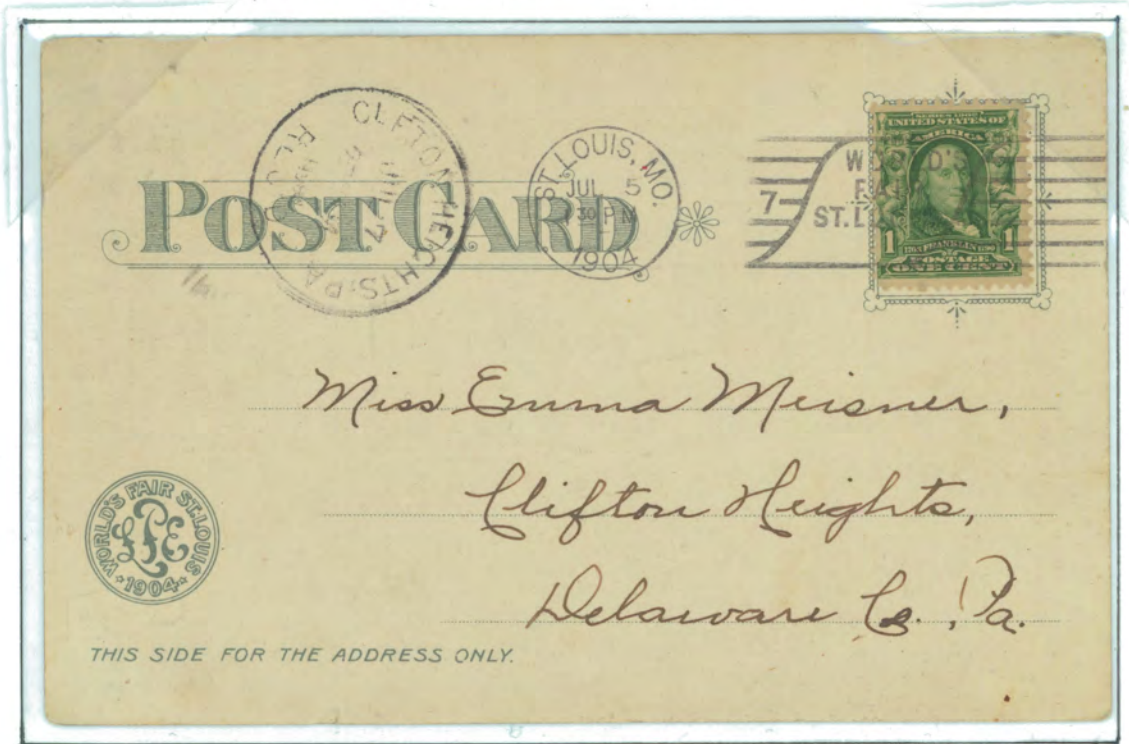 POST CARD
CLIFTON HEIGHTS, PA.
JUL 7
REC'D.
ST. LOUIS, MO.
JUL 5
30 PM
1904
7
ST. L
SERIES 1902
UNITED STATES OF
AMERICA
1 1706 FRANKLIN 1790 1
POSTAGE
ONE CENT
Miss Emma Meisner,
Clifton Heights,
Delaware Co., Pa.
WORLD'S FAIR ST. LOUIS
LPE
1904
THIS SIDE FOR THE ADDRESS ONLY.